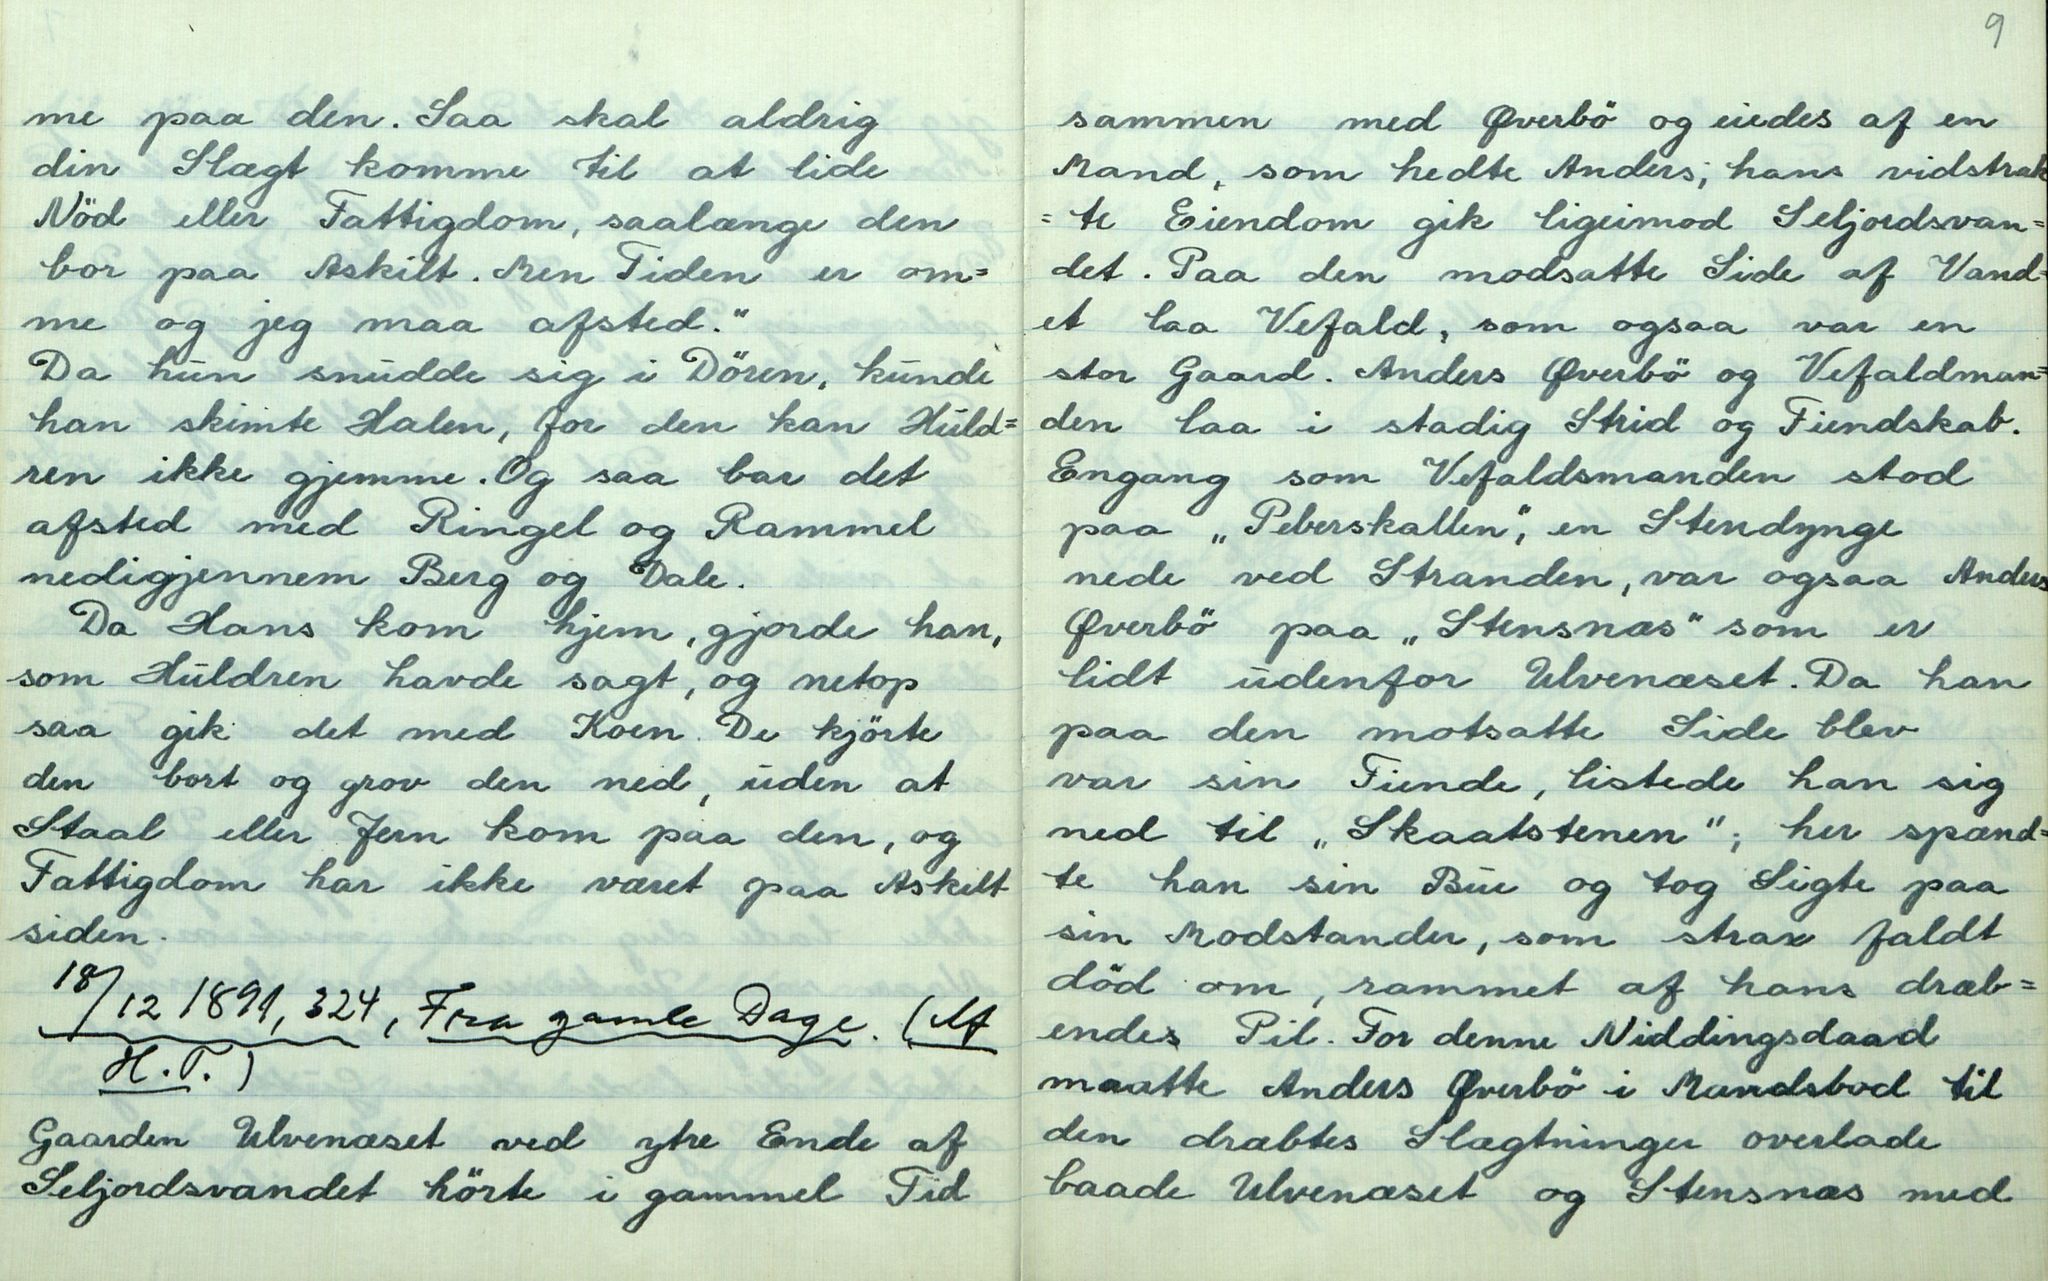 me paa den. Saa skal aldrig
din Slægt komme til at lide
Nöd eller Fattigdom, saalænge den
bor paa Askilt. Men Tiden er om=
me og jeg maa afsted."
Da hun snudde sig i Dören, kunde
han skimte Halen, for den kan Huld=
ren ikke gjemme. Og saa bar det
afsted med Ringel og Rammel
nedigjennem Berg og Dale.
Da Hans kom hjem, gjorde han,
som Huldren havde sagt, og netop
saa gik det med Koen. De kjörte
den bort og grov den ned, uden at
Staal eller Jern kom paa den, og
Fattigdom har ikke været paa Askilt
siden.
18/12 1891, 324, Fra gamle Dage. (Af
H.T.)
Gaarden Ulvenæset ved ytre Ende af
Seljordsvandet hörte i gammel Tid
9
sammen med Øverbö og eiedes af en
Mand, som hedte Anders; hans vidstrak
=te Eiendom gik ligeimod Seljordsvan=
det. Paa den modsatte Side af Vand=
et laa Vefald, som ogsaa var en
stor Gaard. Anders Øverbö og Vefaldman=
den laa i stadig Strid og Fiendskab.
Engang som Vefaldsmanden stod
paa „Peberskallen", en Stendynge
nede ved Stranden, var ogsaa Anders
Øverbö paa „Stensnæs" som er
lidt udenfor Ulvenæset. Da han
paa den motsatte Side blev
var sin Fiende, listede han sig
ned til „Skaatstenen"; her spænd=
te han sin Bue og tog Sigte paa
sin Modstander, som strax faldt
död om, rammet af hans dræb=
endes Pil. For denne Niddingsdaad
maatte Anders Øverbö i Mandsbod til
den dræbtes Slægtninger overlade
baade Ulvenæset og Stensnæs med